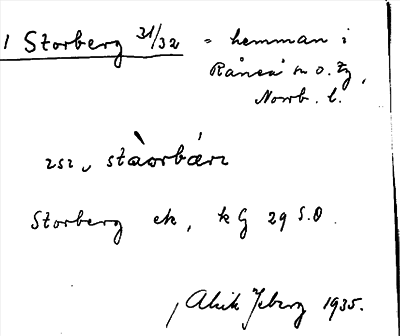 1 Storberg 31/32 = hemman i
Råneå sn o. tg,
Norrb. l.
stàorbárr
Storberg ek, k G 29 S.O.
Alrik Yberg 1935.